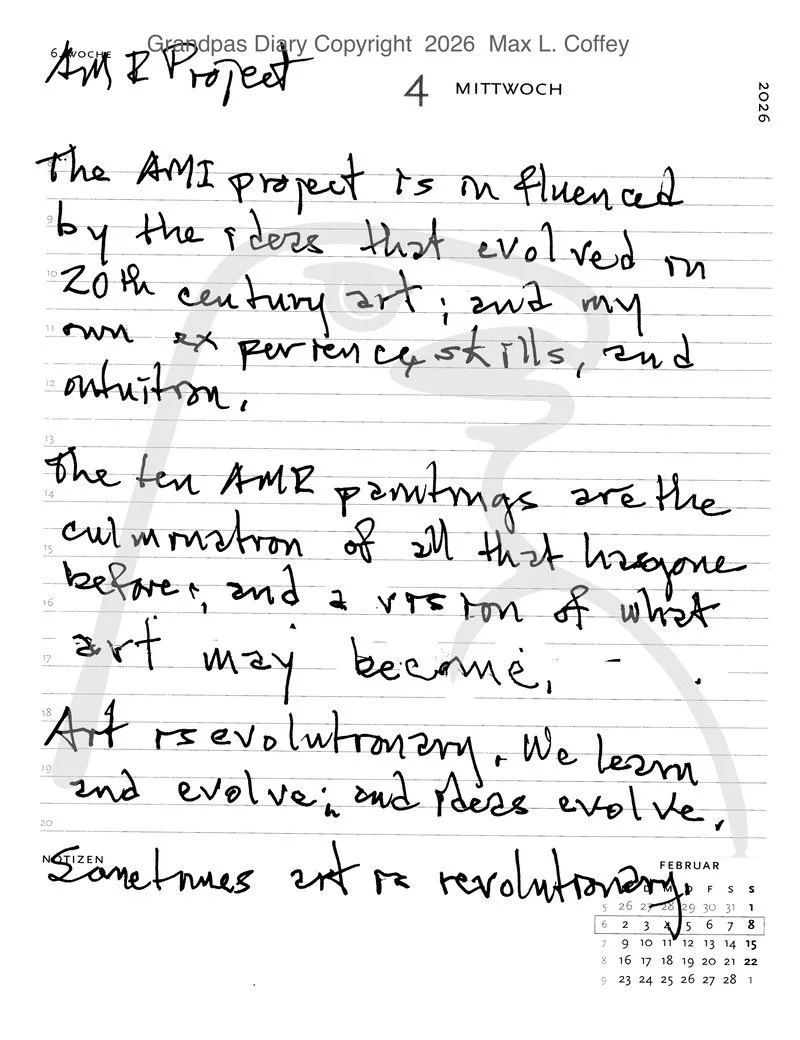 Grandpas Diary Copyright 2026 Max L. Coffey
6. WOCHE
AMR Project
4 MITTWOCH
2026
The AMI project is influenced
by the ideas that evolved in
20th century art; and my
own experience, skills, and
intuition.
The ten AMR paintings are the
culmination of all that has gone
before; and a vision of what
art may become.
Art is evolutionary. We learn
and evolve; and ideas evolve.
Sometimes art is revolutionary.
9
10
11
12
13
14
15
16
17
18
19
20
NOTIZEN
FEBRUAR
D M D F S S
5 26 27 28 29 30 31 1
6 2 3 4 5 6 7 8
7 9 10 11 12 13 14 15
8 16 17 18 19 20 21 22
9 23 24 25 26 27 28 1